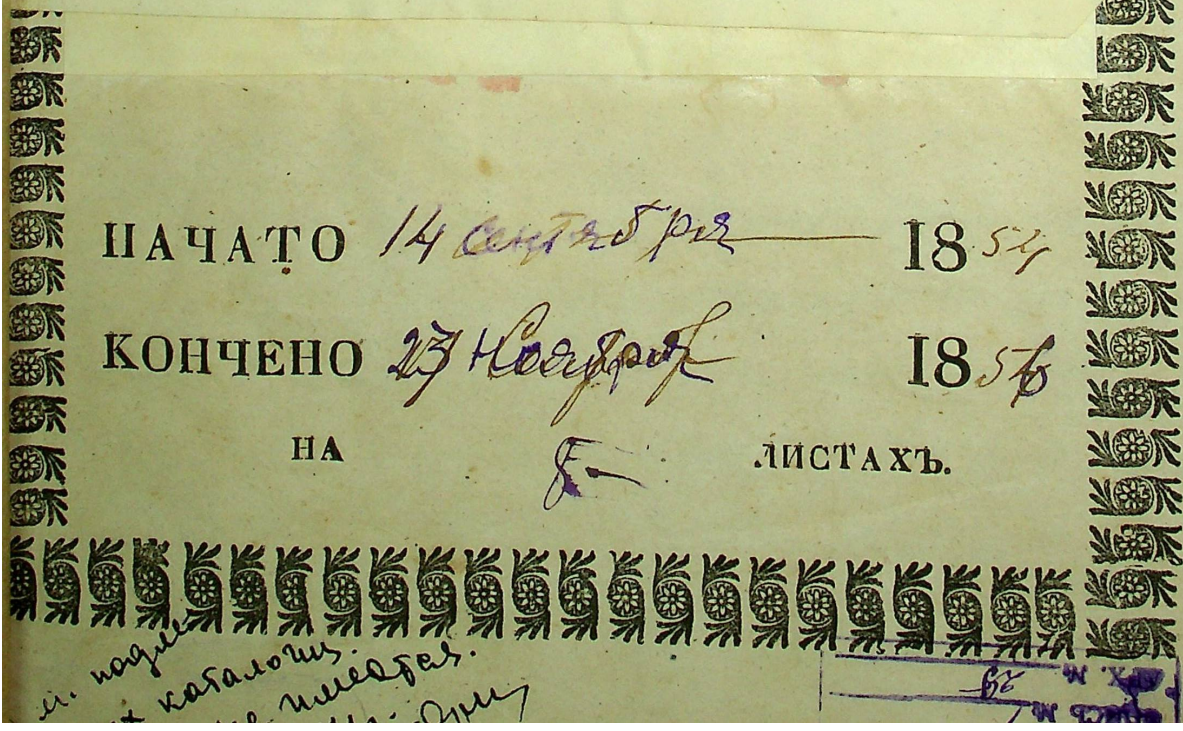 НАЧАТО 14 сентября 1854
КОНЧЕНО 23 Ноября 1856
НА 8 ЛИСТАХЪ.
каталогиз.
имеется.
Арх. №
№